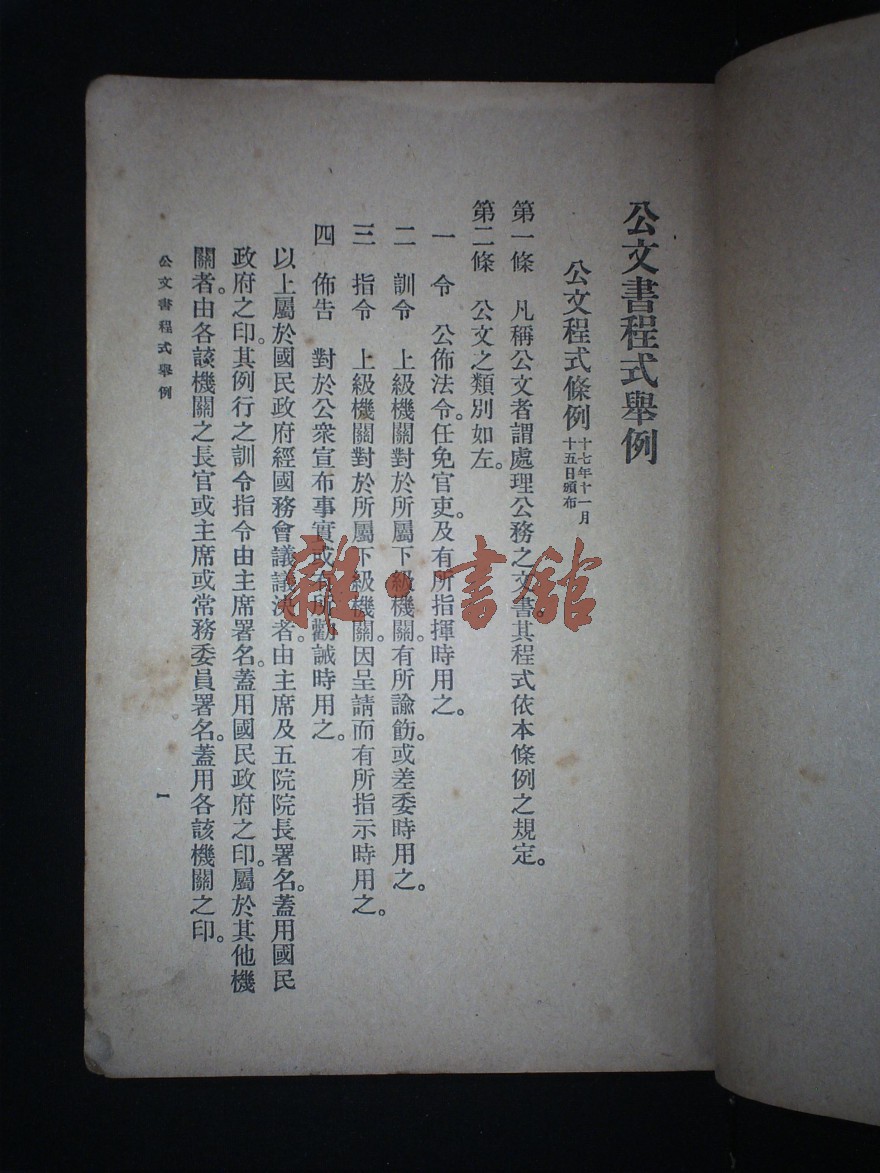 公文書程式舉例
公文程式條例 十七年十一月
十五日頒布
第一條 凡稱公文者謂處理公務之文書。其程式依本條例之規定。
第二條 公文之類別如左。
一 令 公佈法令。任免官吏。及有所指揮時用之。
二 訓令 上級機關對於所屬下級機關。有所諭飭或差委時用之。
三 指令 上級機關對於所屬下級機關。因呈請而有所指示時用之。
四 佈告 對於公衆宣布事實或有所勸誡時用之。
以上屬於國民政府經國務會議議決者。由主席及五院院長署名。蓋用國民
政府之印。其例行之訓令指令由主席署名。蓋用國民政府之印。屬於其他機
關者。由各該機關之長官或主席或常務委員署名。蓋用各該機關之印。
公文書程式舉例
一
雜·書館